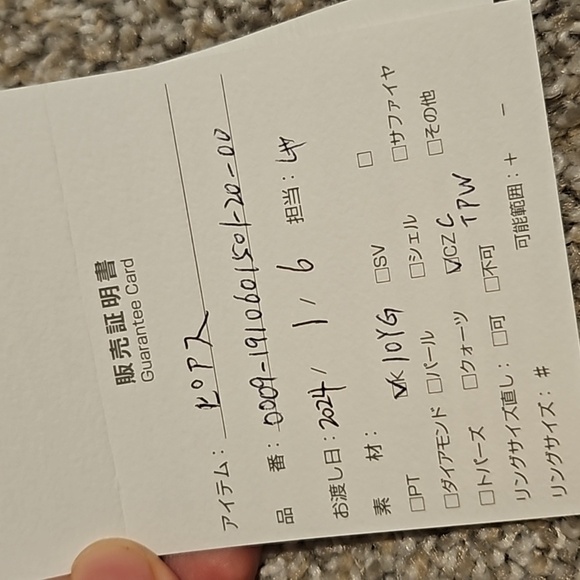 販売証明書
Guarantee Card
アイテム： ピアス
品 番： 0009-1910601501-20-00
お渡し日：2024 / 1 / 6 担当：
素 材：
□PT ☑K10YG □SV □
□ダイアモンド □パール □シェル □サファイヤ
□トパーズ □クォーツ ☑CZ C □その他
TPW
リングサイズ直し： □可 □不可
リングサイズ：# 可能範囲：+ −